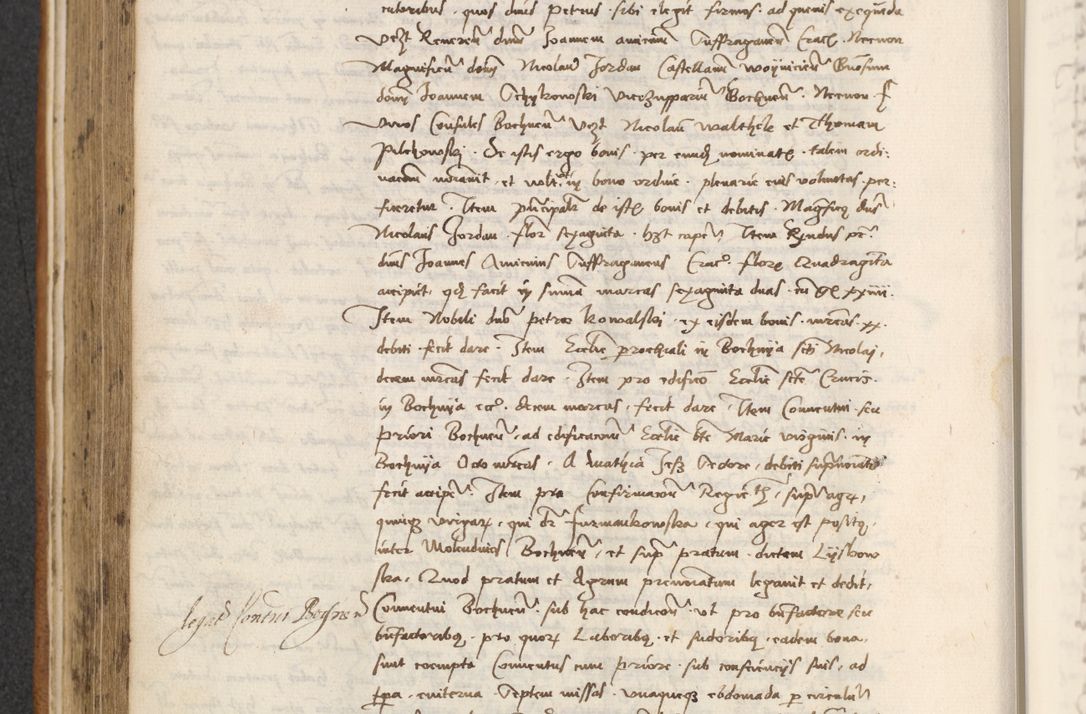 cutoribus, quos dnus Petrus sibi elegit firmos, ad quenis exequenda
Vezt Reneren dnm Joannem amicenu Suffraganeu Crac. Necnon
Magnificu dnm Nicolau Jordan Castellanu woyniciens Gnosum
domi Joannem Schykowski vicezuppariu Bochnen. Necnon f
viros Consules Bochnen vezt Nicolau walthek et Thomam
Pilchowski. De istis ergo bonis per eund nominate talem ordi:
nacom uoramit, et nobt in bono ordine plenarie eius volumtas per:
ficeretur. Item pncipalr de iste bonis et debitis Magficq dns
Nicolaus Jordan flor sexaginta hzt caper, Item Rndus pr
dnus Joannes Amicinus Suffraganeus Crac. flore Quadraginta
accipiet qd facit in summa marcas sexaginta duas cu gl xxiiii.
Item Nobili dno petro kowalski ex eisdem bonis marcas xx.
debiti fecit dare. Item Ecclie prochiali in Bochnija scti Nicolai,
decem marcas fecit dare. Item pro edifico Ecclie scte Crucis
in Bochnija ecc. decem marcas, fecit dare, Item Conuentui seu
priori Bochnen, ad edificacom Ecclie bte Marie virginis in
Bochnija Octo marcas, A Mathia Jesz Sedore, debiti supnoiati
fecit accipe. Item pro Confirmacom Regie sup agr,
quinq virgarz, qui dr furmankowska, qui ager est positq,
inter Molendinis Bochnen, et sup pratum dictam Lyskow
ska, Quod pratum et Agrum prenominatum legauit et dedit,
Conuentui Bochnen sub hac condicom vt pro bnfactore seu
bnfactoribq, pro quorz Laboribq et sudoribq eadem bona,
sunt coempta Conuentus cum priore sub consciencijs suis, ad
fpa, euiterna Septem missas vnaquaqz ebdomada p circulu
Legat Conventui Bochnen